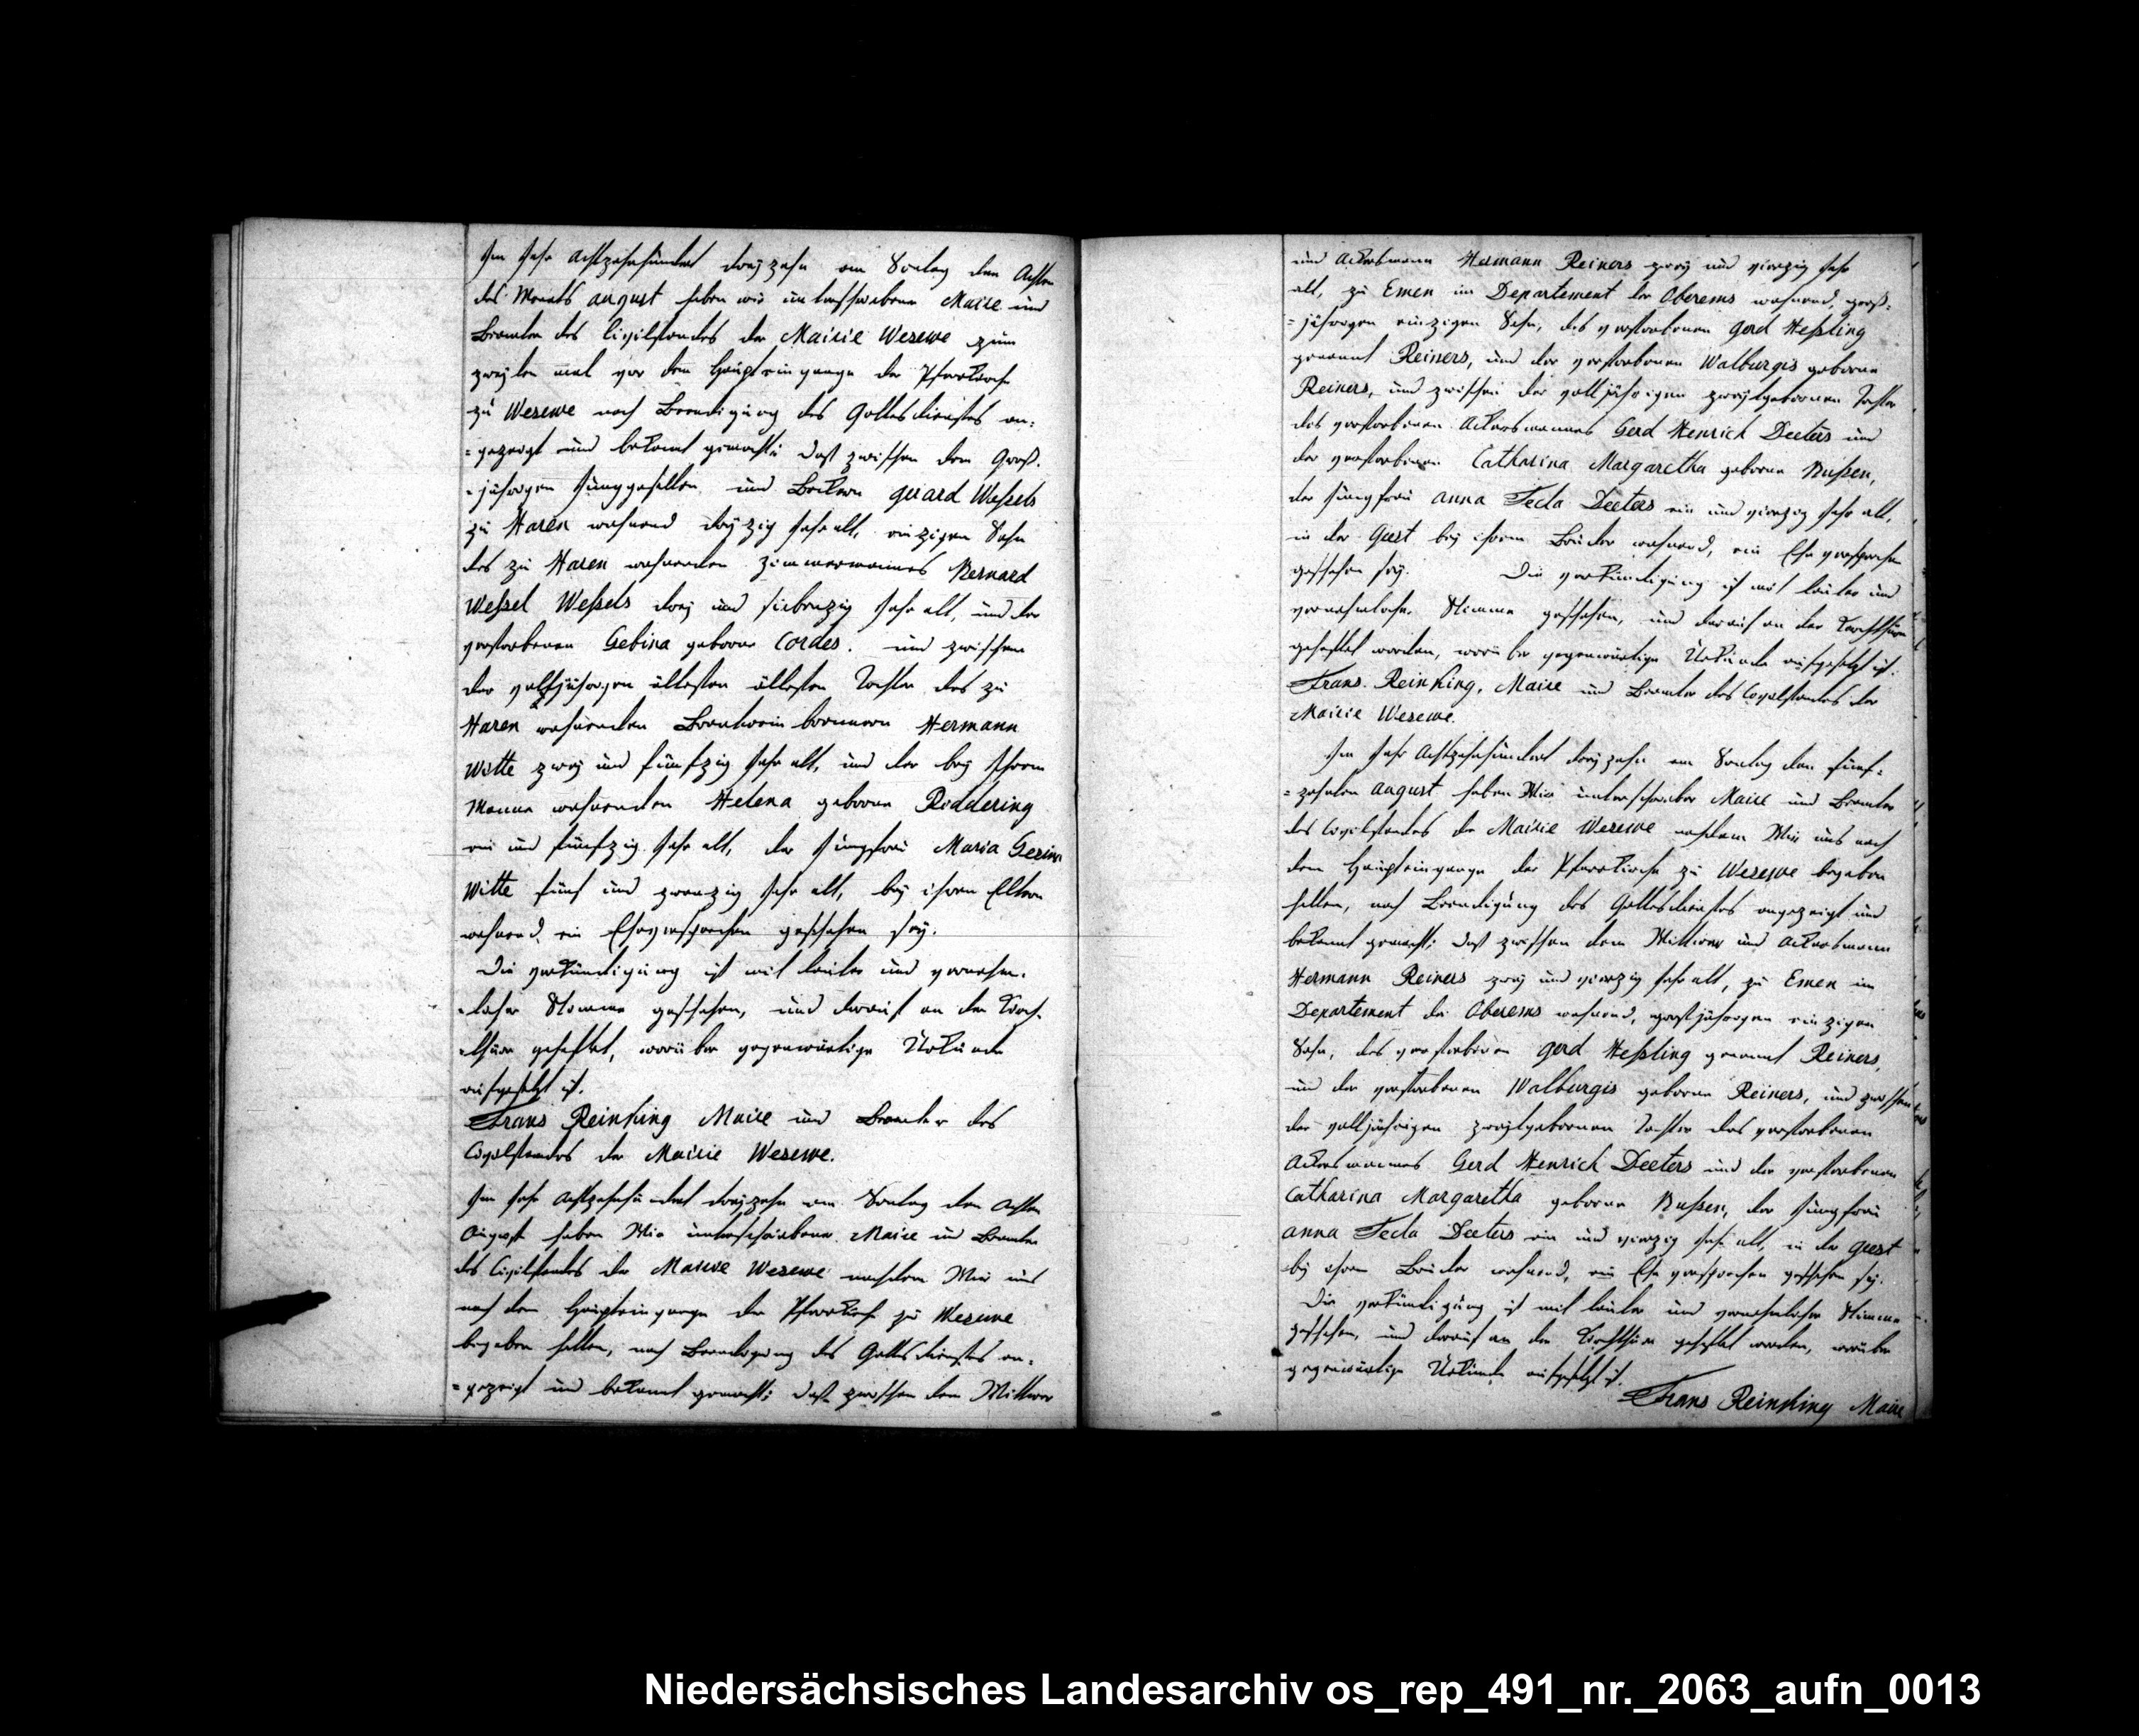 Im Jahr Achtzehnhundert dreyzehn am Sontag den Achten
des Monats august haben wir unterschriebener Maire und
Beamter des Civilstandes der Mairie Wesuwe zum
zweyten mal vor dem Haupteingange der Pfarrkirche
zu Wesuwe nach Beendigung des Gottesdienstes an-
-gezeigt und bekannt gemacht: daß zwischen dem Groß-
-jährigen Junggesellen und Beckern Gerard Weßels
zu Haren wohnend dreyzig Jahr alt, einzigen Sohn
des zu Haren wohnenden Zimmermannes Bernard
Weßel Weßels drey und siebenzig Jahr alt, und der
verstorbenen Gebina geborne Cordes. und zwischen
der volljährigen ältesten ältesten Tochter des zu
Haren wohnenden Brantweinbrenners Hermann
Witte zwey und fünfzig Jahr alt, und der bey Ihrem
Manne wohnenden Helena geborne Röddering
ein und fünfzig Jahr alt, der Jungfrau Maria Gesina
Witte fünf und zwanzig Jahr alt, bey ihren Eltern
wohnend, ein Eheversprechen geschehen sey.
Die Verkündigung ist mit lauter und vernehm-
-licher Stimme geschehen, und darauf an der Kirch-
-thüre geheftet, worüber gegenwärtige Urkunde
aufgesetzt ist.
Frans Reinking Maire und Beamter des
Civilstandes der Mairie Wesuwe.
Im Jahr Achtzehnhundert dreyzehn am Sontag den Achten
August haben Wir unterschriebener Maire und Beamter
des Civilstandes der Mairie Wesuwe nachdem Wir uns
nach dem Haupteingange der Pfarrkirche zu Wesuwe
begeben hatten, nach Beendigung des Gottesdienstes an-
-gezeigt und bekannt gemacht: daß zwischen dem Wittwer
und Ackersmann Hermann Reiners zwey und vierzig Jahr
alt, zu Emen im Departement der Oberems wohnend, groß-
-jährigen einzigen Sohn, des verstorbenen Gerd Heßling
genannt Reiners, und der verstorbenen Walburgis geborne
Reiners, und zwischen der volljährigen zweytgebornen Tochter
des verstorbenen Ackersmannes Gerd Henrich Deeters und
der verstorbenen Catharina Margaretha geborne Bußen,
der Jungfrau Anna Tecla Deeters ein und vierzig Jahr alt,
in der Geest bey ihrem Bruder wohnend, ein Eheversprechen
geschehen sey. Die Verkündigung ist mit lauter und
vernehmlicher Stimme geschehen, und darauf an der Kirchthüre
geheftet worden, worüber gegenwärtige Urkunde aufgesetzt ist.
Frans Reinking, Maire und Beamter des Civilstandes der
Mairie Wesuwe.
Im Jahr Achtzehnhundert dreyzehn am Sontag den fünf-
-zehnten august haben Wir unterschriebener Maire und Beamter
des Civilstandes der Mairie Wesuwe nachdem Wir uns nach
dem Haupteingange der Pfarrkirche zu Wesuwe begeben
hatten, nach Beendigung des Gottesdienstes angezeigt und
bekannt gemacht: daß zwischen dem Wittwer und Ackersmann
Hermann Reiners zwey und vierzig Jahr alt, zu Emen im
Departement der Oberems wohnend, großjährigen einzigen
Sohn, des verstorbenen Gerd Heßling genannt Reiners,
und der verstorbenen Walburgis geborne Reiners, und zwischen
der volljährigen zweytgebornen Tochter des verstorbenen
Ackersmannes Gerd Henrich Deeters und der verstorbenen
Catharina Margaretha geborne Bußen, der Jungfrau
Anna Tecla Deeters ein und vierzig Jahr alt, in der Geest
bey ihrem Bruder wohnend, ein Eheversprechen geschehen sey.
Die Verkündigung ist mit lauter und vernehmlicher Stimme
geschehen, und darauf an der Kirchthüre geheftet worden, worüber
gegenwärtige Urkunde aufgesetzt ist.
Frans Reinking Maire
Niedersächsisches Landesarchiv os_rep_491_nr._2063_aufn_0013